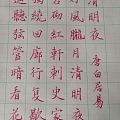 清明夜 唐白居易
好風朧月清明夜
碧砌紅軒刺史家
獨繞迴廊行復歇
遥聽弦管暗看花